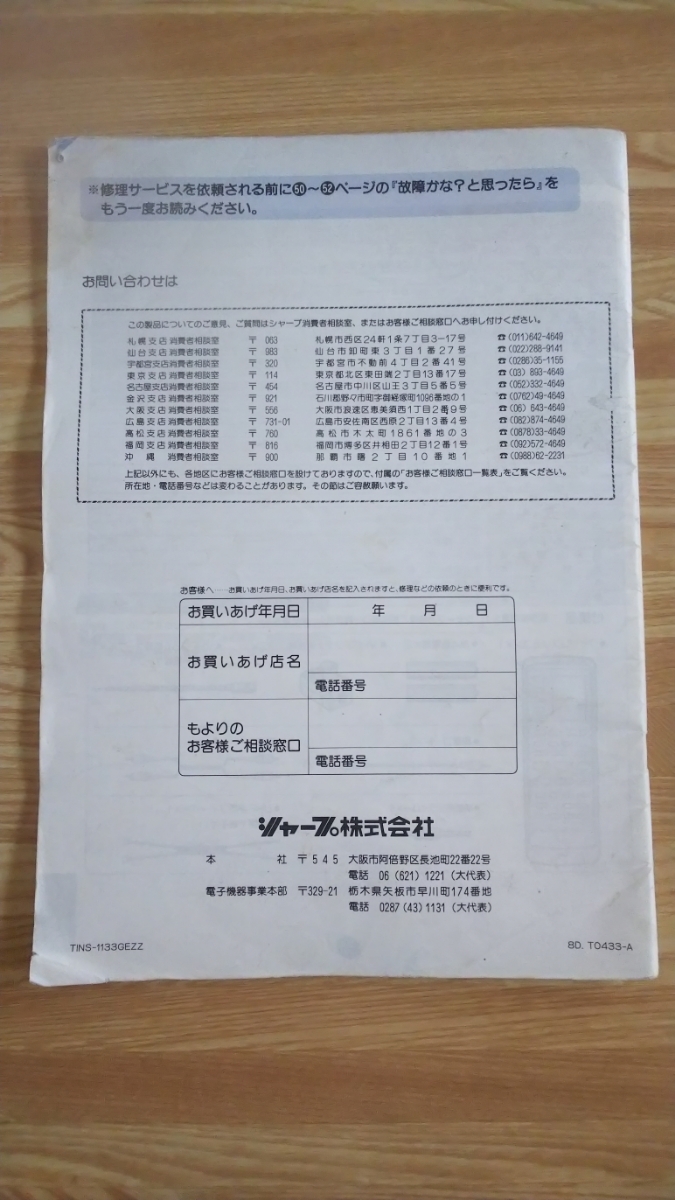 ※修理サービスを依頼される前に㊿〜52ページの『故障かな?と思ったら』を
もう一度お読みください。
お問い合わせは
この製品についてのご意見、ご質問はシャープ消費者相談室、またはお客様ご相談窓口へお申し付けください。
札幌支店消費者相談室 〒 063 札幌市西区24軒1条7丁目3-17号 ☎(011)642-4649
仙台支店消費者相談室 〒 983 仙台市卸町東3丁目1番27号 ☎(022)288-9141
宇都宮支店消費者相談室 〒 320 宇都宮市不動前4丁目2番41号 ☎(0286)35-1155
東京支店消費者相談室 〒 114 東京都北区東田端2丁目13番17号 ☎(03) 893-4649
名古屋支店消費者相談室 〒 454 名古屋市中川区山王3丁目5番5号 ☎(052)332-4649
金沢支店消費者相談室 〒 921 石川郡野々市町字御経塚町1096番地の1 ☎(0762)49-4649
大阪支店消費者相談室 〒 556 大阪市浪速区恵美須西1丁目2番9号 ☎(06) 643-4649
広島支店消費者相談室 〒 731-01 広島市安佐南区西原2丁目13番4号 ☎(082)874-4649
高松支店消費者相談室 〒 760 高松市木太町1861番地の3 ☎(0878)33-4649
福岡支店消費者相談室 〒 816 福岡市博多区井相田2丁目12番1号 ☎(092)572-4649
沖縄 消費者相談室 〒 900 那覇市曙2丁目10番地1 ☎(0988)62-2231
上記以外にも、各地区にお客様ご相談窓口を設けておりますので、付属の「お客様ご相談窓口一覧表」をご覧ください。
所在地・電話番号などは変わることがあります。その節はご容赦願います。
お客様へ……お買いあげ年月日、お買いあげ店名を記入されますと、修理などの依頼のときに便利です。
お買いあげ年月日 年 月 日
お買いあげ店名
電話番号
もよりの
お客様ご相談窓口
電話番号
シャープ株式会社
本 社 〒545 大阪市阿倍野区長池町22番22号
電話 06 (621) 1221 (大代表)
電子機器事業本部 〒329-21 栃木県矢板市早川町174番地
電話 0287 (43) 1131 (大代表)
TINS-1133GEZZ 8D. T0433-A